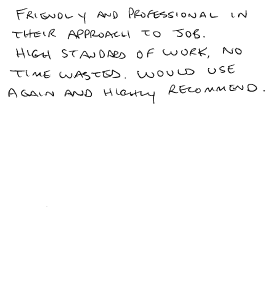 FRIENDLY AND PROFESSIONAL IN
THEIR APPROACH TO JOB.
HIGH STANDARD OF WORK, NO
TIME WASTED. WOULD USE
AGAIN AND HIGHLY RECOMMEND.